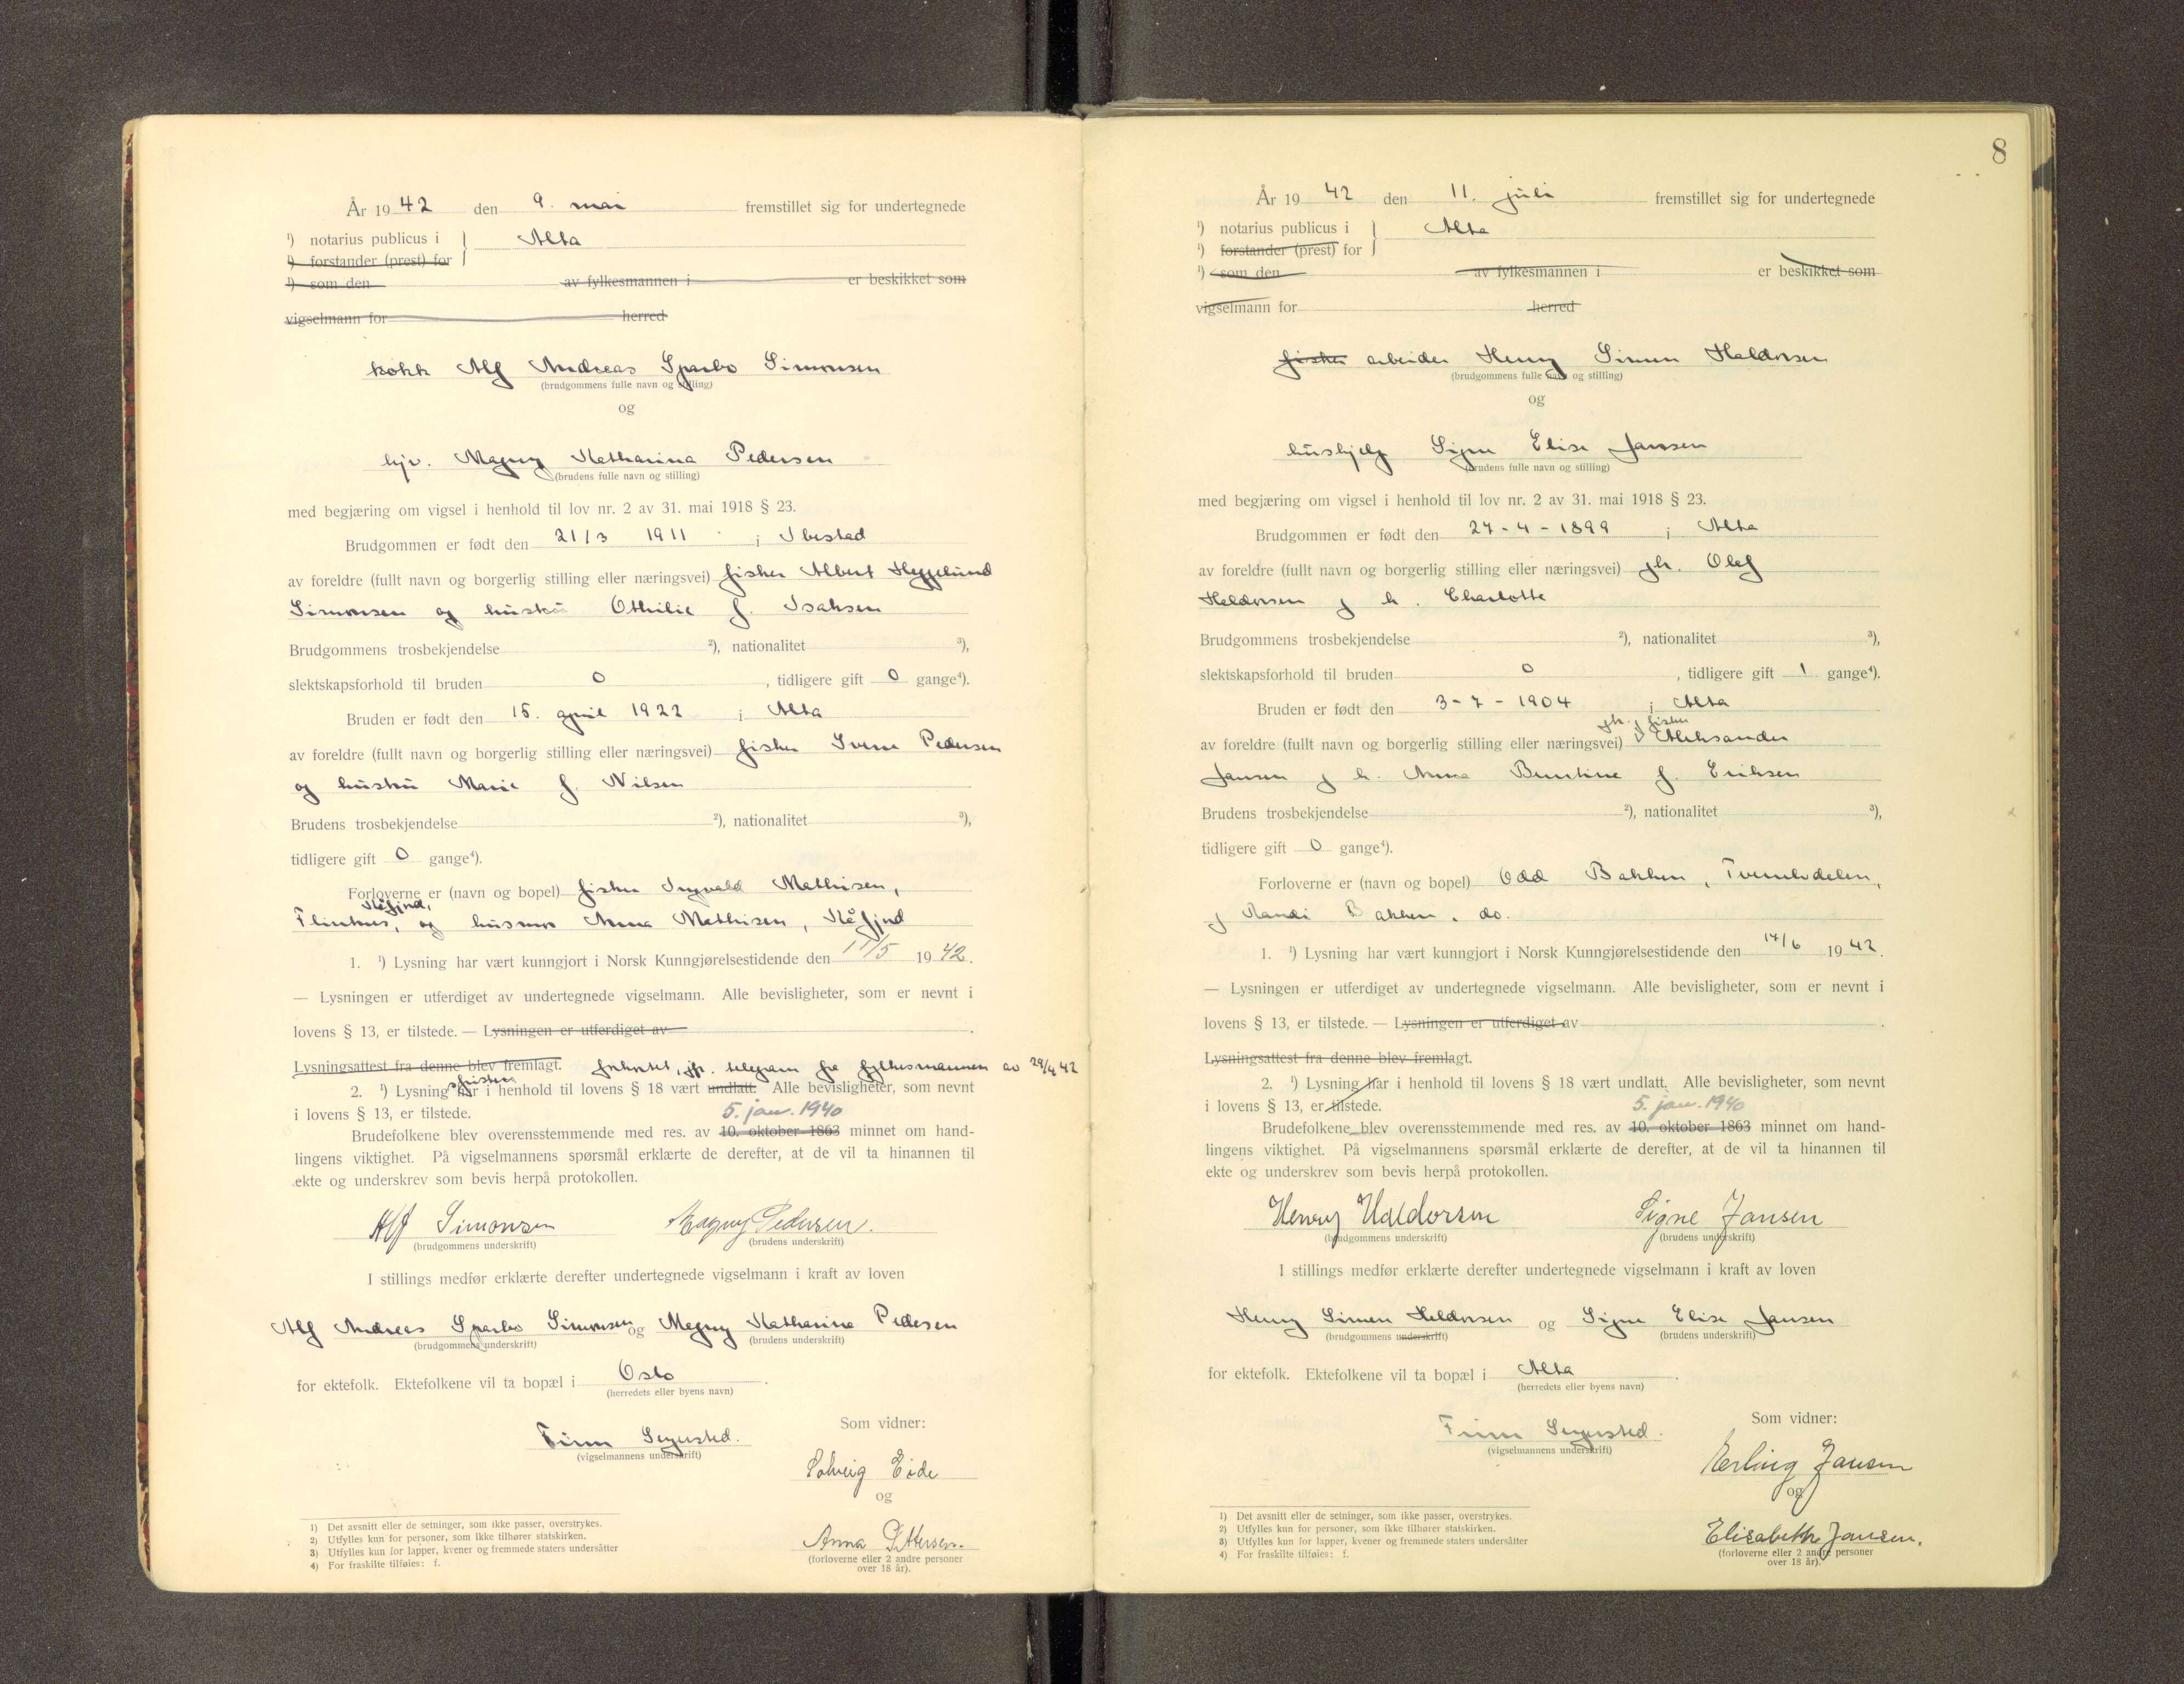 År 19 42 den 9. mai fremstillet sig for undertegnede
¹) notarius publicus i } Alta
¹) forstander (prest) for
¹) som den av fylkesmannen i er beskikket som
vigselmann for herred
kokk Alf Andreas Sparbo Simonsen
(brudgommens fulle navn og stilling)
og
hjv. Magny Katharina Pedersen
(brudens fulle navn og stilling)
med begjæring om vigsel i henhold til lov nr. 2 av 31. mai 1918 § 23.
Brudgommen er født den 21/3 1911 i Ibestad
av foreldre (fullt navn og borgerlig stilling eller næringsvei) fisker Albert Heggelund
Simonsen og hustru Othilie f. Isaksen
Brudgommens trosbekjendelse ²), nationalitet ³),
slektskapsforhold til bruden 0, tidligere gift 0 gange⁴).
Bruden er født den 15. april 1922 i Alta
av foreldre (fullt navn og borgerlig stilling eller næringsvei) fisker Sverre Pedersen
og hustru Marie f. Nilsen
Brudens trosbekjendelse ²), nationalitet ³),
tidligere gift 0 gange⁴).
Forloverne er (navn og bopel) fisker Ingvald Mathisen,
Kåfjord,
og husmor Anna Mathisen, Kåfjord
1. ¹) Lysning har vært kunngjort i Norsk Kunngjørelsestidende den 11/5 19 42.
— Lysningen er utferdiget av undertegnede vigselmann. Alle bevisligheter, som er nevnt i
lovens § 13, er tilstede. — Lysningen er utferdiget av .
Lysningsattest fra denne blev fremlagt. forkortet, jfr. telegram fra fylkesmannen av 29/4 42
2. ¹) Lysning fristen har i henhold til lovens § 18 vært undlatt. Alle bevisligheter, som nevnt
i lovens § 13, er tilstede. 5. jan. 1940
Brudefolkene blev overensstemmende med res. av 10. oktober 1863 minnet om hand-
lingens viktighet. På vigselmannens spørsmål erklærte de derefter, at de vil ta hinannen til
ekte og underskrev som bevis herpå protokollen.
Alf Simonsen Magny Pedersen.
(brudgommens underskrift) (brudens underskrift)
I stillings medfør erklærte derefter undertegnede vigselmann i kraft av loven
Alf Andreas Sparbo Simonsen og Magny Katharina Pedersen
(brudgommens underskrift) (brudens underskrift)
for ektefolk. Ektefolkene vil ta bopæl i Oslo .
(herredets eller byens navn)
Som vidner:
Finn Segusted.
(vigselmannens underskrift)
Solveig Eide
og
Anna Pettersen.
(forloverne eller 2 andre personer
over 18 år).
1) Det avsnitt eller de setninger, som ikke passer, overstrykes.
2) Utfylles kun for personer, som ikke tilhører statskirken.
3) Utfylles kun for lapper, kvener og fremmede staters undersåtter
4) For fraskilte tilføies: f.
8
År 19 42 den 11. juli fremstillet sig for undertegnede
¹) notarius publicus i } Alta
¹) forstander (prest) for
¹) som den av fylkesmannen i er beskikket som
vigselmann for herred
fisker arbeider Henry Simen Haldorsen
(brudgommens fulle navn og stilling)
og
hushjelp Signe Elise Jansen
(brudens fulle navn og stilling)
med begjæring om vigsel i henhold til lov nr. 2 av 31. mai 1918 § 23.
Brudgommen er født den 27-4-1899 i Alta
av foreldre (fullt navn og borgerlig stilling eller næringsvei) gh. Olaf
Haldorsen og h. Charlotte
Brudgommens trosbekjendelse ²), nationalitet ³),
slektskapsforhold til bruden 0, tidligere gift 1 gange⁴).
Bruden er født den 3-7-1904 i Alta
gh. og fisker
av foreldre (fullt navn og borgerlig stilling eller næringsvei) Aleksander
Jansen og h. Anna Berntine f. Eriksen
Brudens trosbekjendelse ²), nationalitet ³),
tidligere gift 0 gange⁴).
Forloverne er (navn og bopel) Odd Bakken, Tverrelvdalen,
og Randi Bakken, do.
1. ¹) Lysning har vært kunngjort i Norsk Kunngjørelsestidende den 14/6 19 42.
— Lysningen er utferdiget av undertegnede vigselmann. Alle bevisligheter, som er nevnt i
lovens § 13, er tilstede. — Lysningen er utferdiget av .
Lysningsattest fra denne blev fremlagt.
2. ¹) Lysning har i henhold til lovens § 18 vært undlatt. Alle bevisligheter, som nevnt
i lovens § 13, er tilstede. 5. jan. 1940
Brudefolkene blev overensstemmende med res. av 10. oktober 1863 minnet om hand-
lingens viktighet. På vigselmannens spørsmål erklærte de derefter, at de vil ta hinannen til
ekte og underskrev som bevis herpå protokollen.
Henry Haldorsen Signe Jansen
(brudgommens underskrift) (brudens underskrift)
I stillings medfør erklærte derefter undertegnede vigselmann i kraft av loven
Henry Simen Haldorsen og Signe Elise Jansen
(brudgommens underskrift) (brudens underskrift)
for ektefolk. Ektefolkene vil ta bopæl i Alta .
(herredets eller byens navn)
Som vidner:
Finn Segusted.
(vigselmannens underskrift)
Erling Jansen
og
Elisabeth Jansen.
(forloverne eller 2 andre personer
over 18 år).
1) Det avsnitt eller de setninger, som ikke passer, overstrykes.
2) Utfylles kun for personer, som ikke tilhører statskirken.
3) Utfylles kun for lapper, kvener og fremmede staters undersåtter
4) For fraskilte tilføies: f.